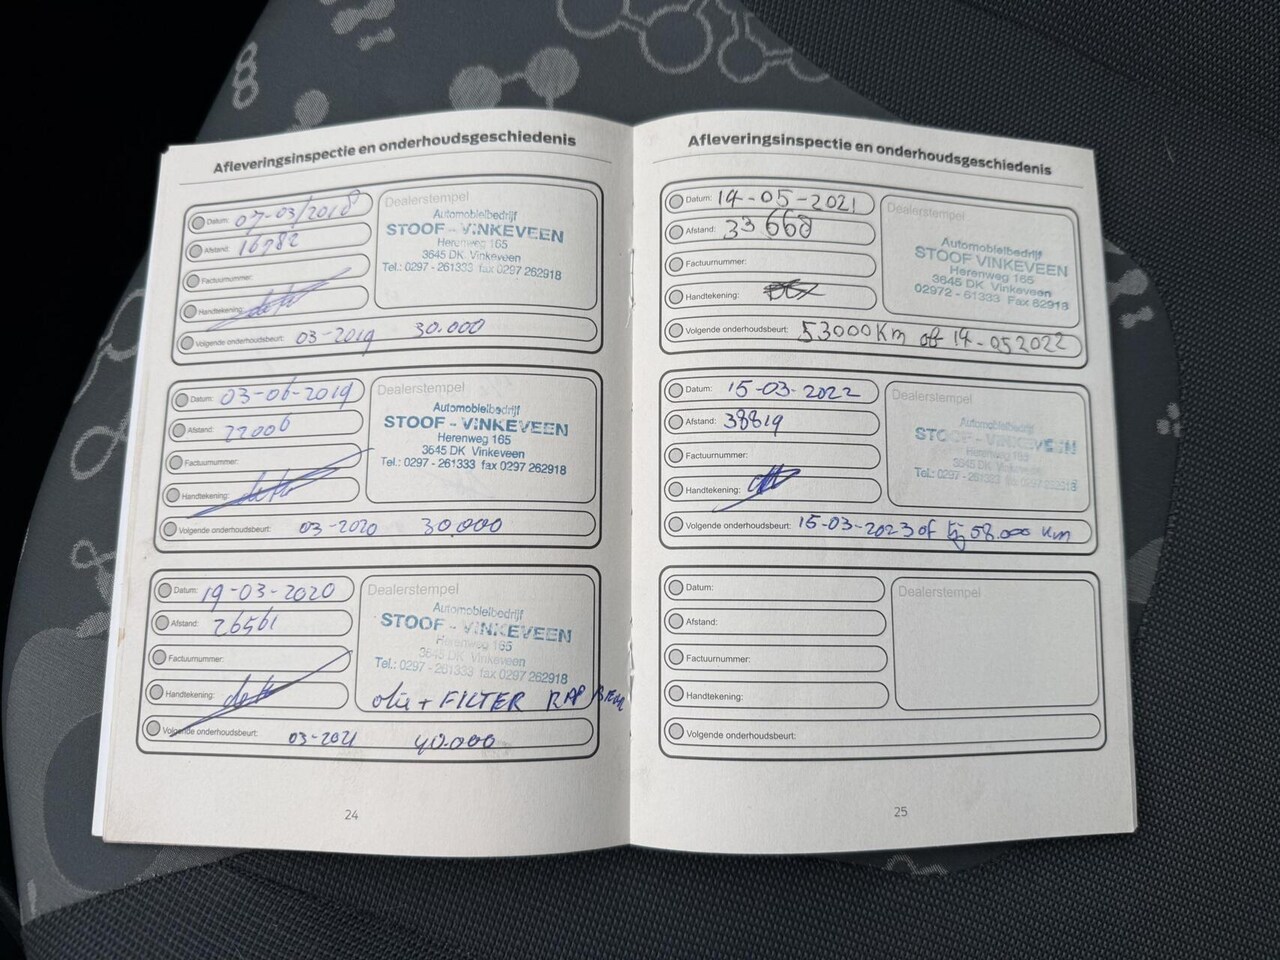 Afleveringsinspectie en onderhoudsgeschiedenis
Datum: 07-03/2018
Afstand: 16782
Factuurnummer:
Handtekening:
Volgende onderhoudsbeurt: 03-2019 30.000
Dealerstempel
Automobielbedrijf
STOOF - VINKEVEEN
Herenweg 165
3645 DK Vinkeveen
Tel.: 0297 - 261333 fax 0297 262918
Datum: 03-06-2019
Afstand: 22006
Factuurnummer:
Handtekening:
Volgende onderhoudsbeurt: 03-2020 30.000
Dealerstempel
Automobielbedrijf
STOOF - VINKEVEEN
Herenweg 165
3645 DK Vinkeveen
Tel.: 0297 - 261333 fax 0297 262918
Datum: 19-03-2020
Afstand: 26561
Factuurnummer:
Handtekening:
Volgende onderhoudsbeurt: 03-2021 40.000
Dealerstempel
Automobielbedrijf
STOOF - VINKEVEEN
Herenweg 165
3645 DK Vinkeveen
Tel.: 0297 - 261333 fax 0297 262918
olie + FILTER
24
Afleveringsinspectie en onderhoudsgeschiedenis
Datum: 14-05-2021
Afstand: 33668
Factuurnummer:
Handtekening:
Volgende onderhoudsbeurt: 53000 Km of 14-05 2022
Dealerstempel
Automobielbedrijf
STOOF VINKEVEEN
Herenweg 165
3645 DK Vinkeveen
02972 - 61333 Fax 62918
Datum: 15-03-2022
Afstand: 38819
Factuurnummer:
Handtekening:
Volgende onderhoudsbeurt: 15-03-2023 of bij 58.000 km
Dealerstempel
Automobielbedrijf
STOOF - VINKEVEEN
Herenweg 165
3645 DK Vinkeveen
Tel.: 0297 - 261333 fax 0297 262918
Datum:
Afstand:
Factuurnummer:
Handtekening:
Volgende onderhoudsbeurt:
Dealerstempel
25